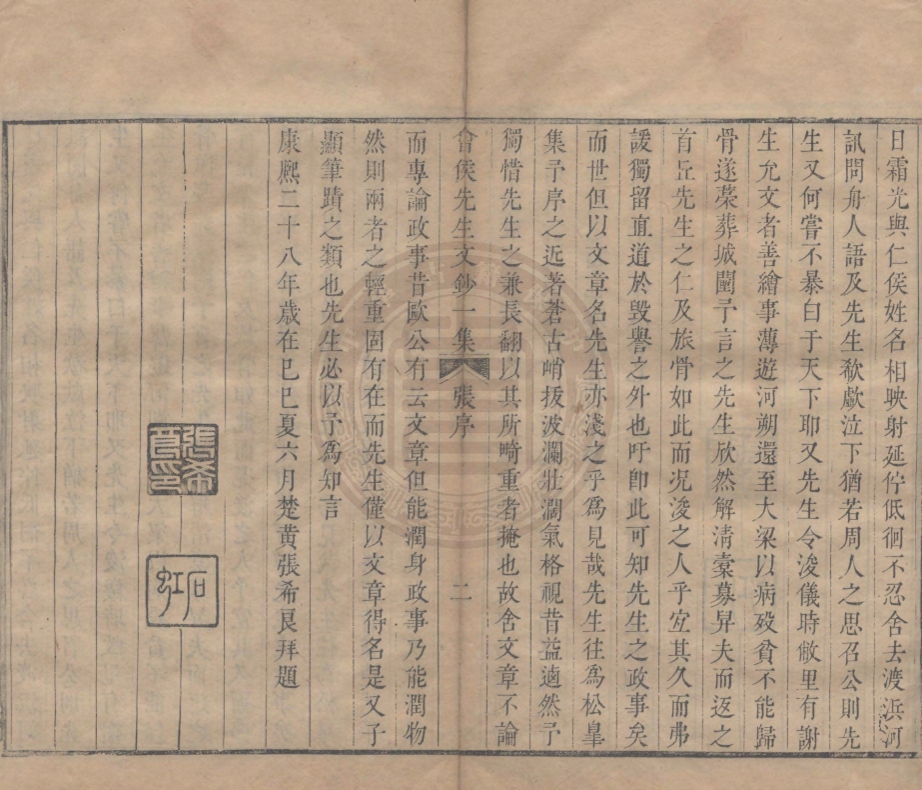 日霜光與仁侯姓名相映射延佇低徊不忍舍去渡浜河
訊問舟人語及先生欷歔泣下猶若周人之思召公則先
生又何嘗不暴白于天下耶又先生令浚儀時敝里有謝
生允文者善繪事薄遊河朔還至大梁以病歿貧不能歸
骨遂藁葬城闉予言之先生欣然解淸橐募舁夫而返之
首丘先生之仁及旅骨如此而況浚之人乎宜其久而弗
諼獨留直道於毀譽之外也吁卽此可知先生之政事矣
而世但以文章名先生亦淺之乎爲見哉先生往爲松臯
集予序之近著蒼古峭拔波瀾壯濶氣格視昔益遒然予
獨惜先生之兼長翻以其所畸重者掩也故舍文章不論
會侯先生文鈔一集 張序 二
而專論政事昔歐公有云文章但能潤身政事乃能潤物
然則兩者之輕重固有在而先生僅以文章得名是又子
顯筆蹟之類也先生必以予爲知言
康熙二十八年歲在己巳夏六月楚黃張希良拜題
張希良印
石虹